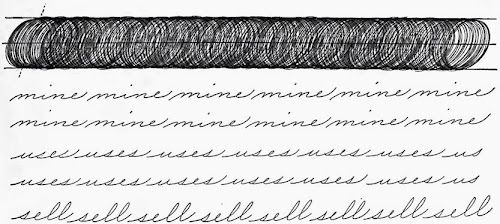 mine mine mine mine mine mine
mine mine mine mine mine mine
uses uses uses uses uses uses us
uses uses uses uses uses uses us
sell sell sell sell sell sell sell sell